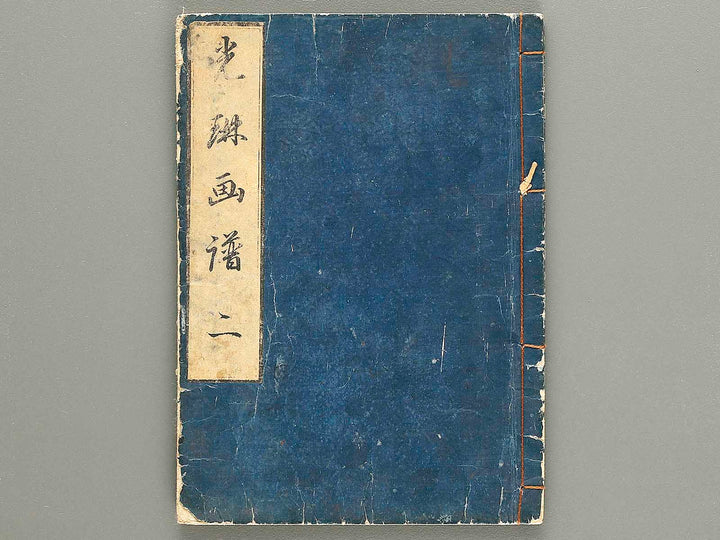 光琳画譜二